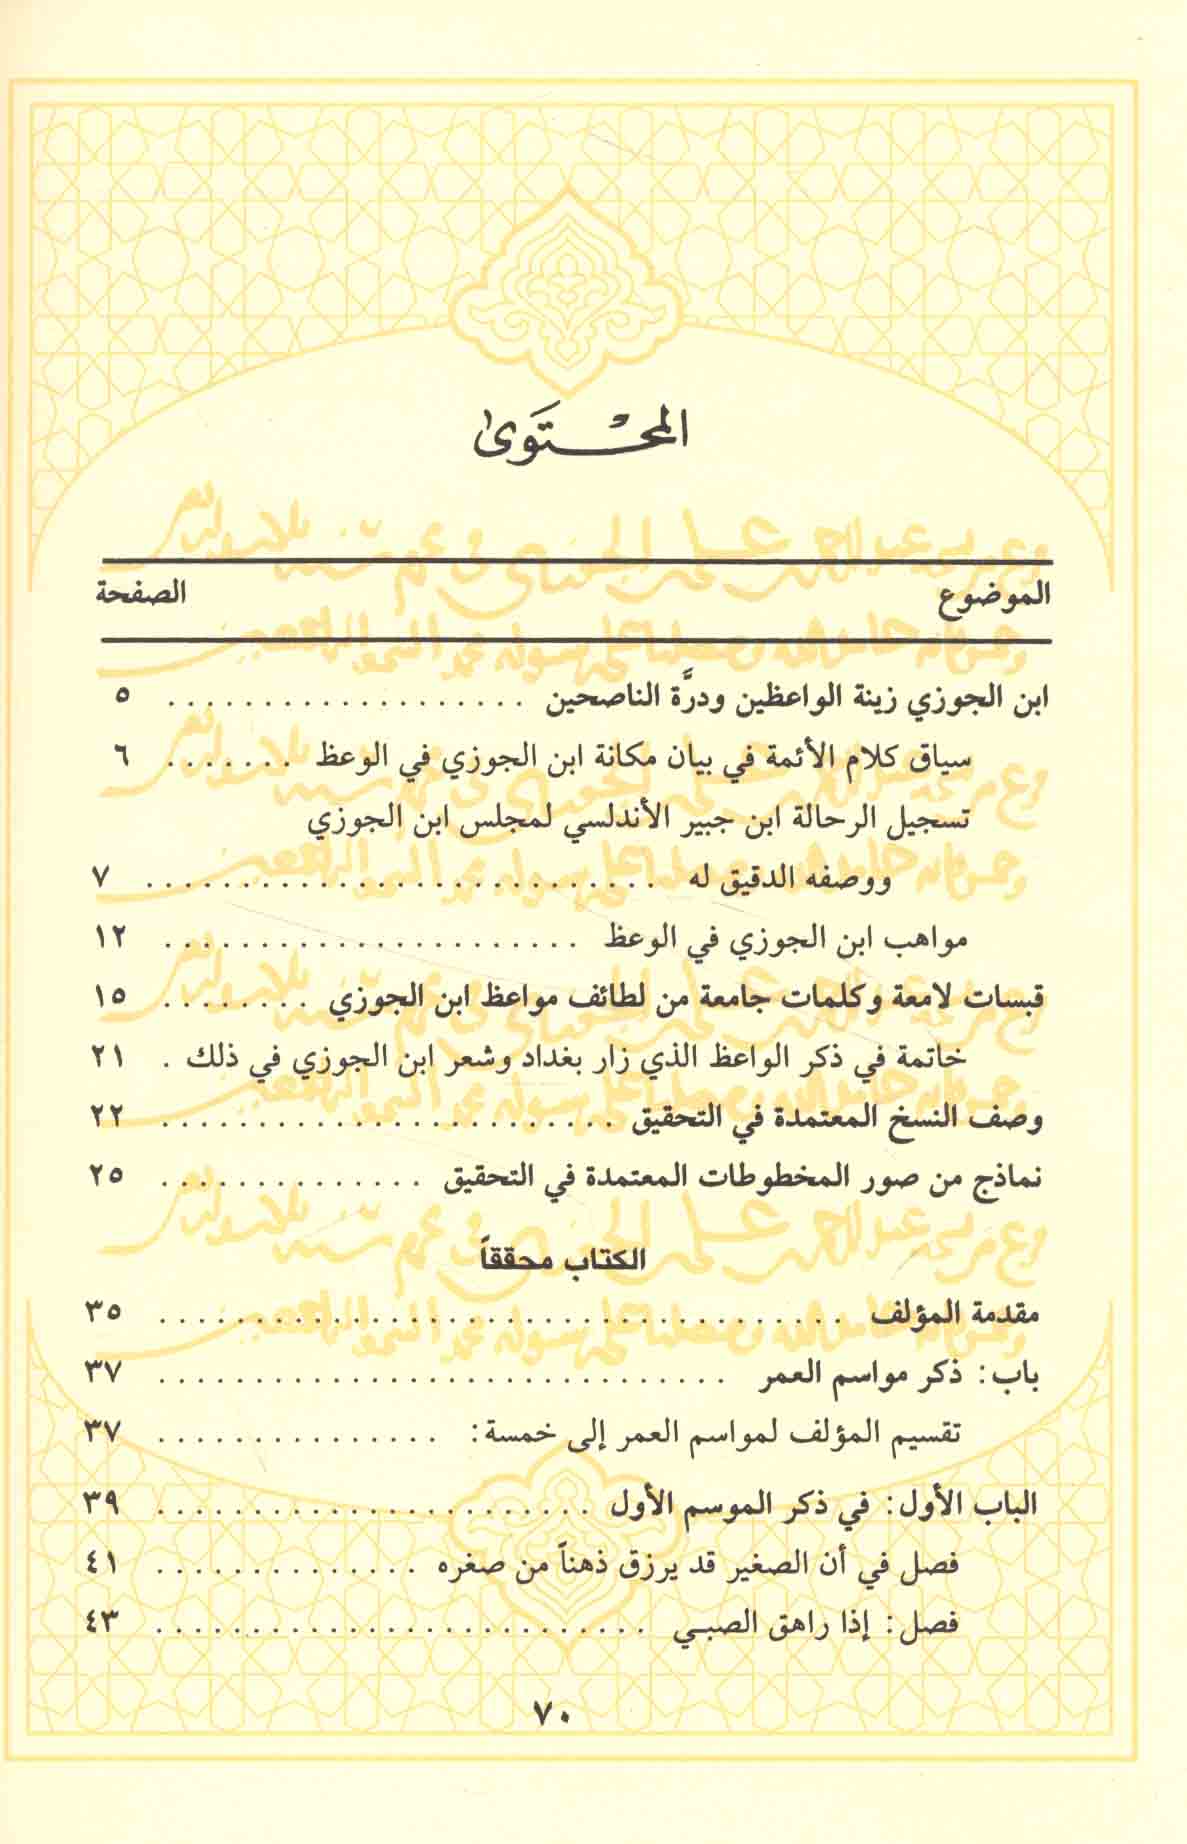 المحْتَوىٰ
الموضوع الصفحة
ابن الجوزي زينة الواعظين ودرَّة الناصحين . . . . . . . . . . . . . . . . . . . ٥
سياق كلام الأئمة في بيان مكانة ابن الجوزي في الوعظ . . . . . . . ٦
تسجيل الرحالة ابن جبير الأندلسي لمجلس ابن الجوزي
ووصفه الدقيق له . . . . . . . . . . . . . . . . . . . . . . . . . . . ٧
مواهب ابن الجوزي في الوعظ . . . . . . . . . . . . . . . . . . . . . . ١٢
قبسات لامعة وكلمات جامعة من لطائف مواعظ ابن الجوزي . . . . . . . . ١٥
خاتمة في ذكر الواعظ الذي زار بغداد وشعر ابن الجوزي في ذلك . ٢١
وصف النسخ المعتمدة في التحقيق . . . . . . . . . . . . . . . . . . . . . . . . ٢٢
نماذج من صور المخطوطات المعتمدة في التحقيق . . . . . . . . . . . . . . ٢٥
الكتاب محققاً
مقدمة المؤلف . . . . . . . . . . . . . . . . . . . . . . . . . . . . . . . . . . . . ٣٥
باب: ذكر مواسم العمر . . . . . . . . . . . . . . . . . . . . . . . . . . . . . . ٣٧
تقسيم المؤلف لمواسم العمر إلى خمسة: . . . . . . . . . . . . . . . ٣٧
الباب الأول: في ذكر الموسم الأول . . . . . . . . . . . . . . . . . . . . . . . ٣٩
فصل في أن الصغير قد يرزق ذهناً من صغره . . . . . . . . . . . . . . ٤١
فصل: إذا راهق الصبي . . . . . . . . . . . . . . . . . . . . . . . . . . ٤٣
٧٠